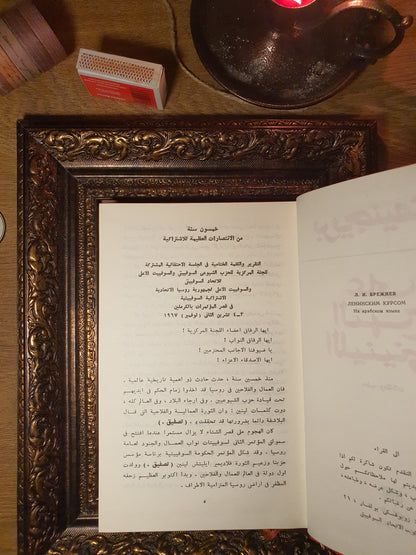 خمسون سنة
من الانتصارات العظيمة للاشتراكية
التقرير والكلمة الختامية في الجلسة الاحتفالية المشتركة
للجنة المركزية للحزب الشيوعي السوفييتي والسوفييت الاعلى
للاتحاد السوفييتي
والسوفييت الاعلى لجمهورية روسيا الاتحادية
الاشتراكية السوفييتية
في قصر المؤتمرات بالكرملين
٣-٤ تشرين الثاني (نوفمبر) ١٩٦٧
ايها الرفاق اعضاء اللجنة المركزية !
ايها الرفاق النواب !
يا ضيوفنا الاجانب المحترمين !
ايها الاصدقاء الاعزاء !
منذ خمسين سنة ، حدث حادث ذو اهمية تاريخية عالمية .
فان العمال والفلاحين في روسيا قد اخذوا زمام الحكم في ايديهم
تحت قيادة حزب الشيوعيين . وفي ارجاء البلاد ، وفي العالم كله ،
دوت كلمات لينين : «ان الثورة العمالية والفلاحية التي قال
البلاشفة دائما بضرورتها قد تحققت» . ( تصفيق . )
كان الهجوم على قصر الشتاء لا يزال مستمرا عندما افتتح في
سمولني المؤتمر الثاني لسوفييتات نواب العمال والجنود لعامة
روسيا . وقد شكل المؤتمر الحكومة السوفييتية برئاسة مؤسس
حزبنا وزعيم الثورة فلاديمير ايليتش لينين ( تصفيق ) وولدت
اول دولة في العالم للعمال والفلاحين . وبدأ اكتوبر العظيم زحفه
المظفر في اراضي روسيا المترامية الاطراف .
Л. И. БРЕЖНЕВ
ЛЕНИНСКИМ КУРСОМ
На арабском языке
الى القراء